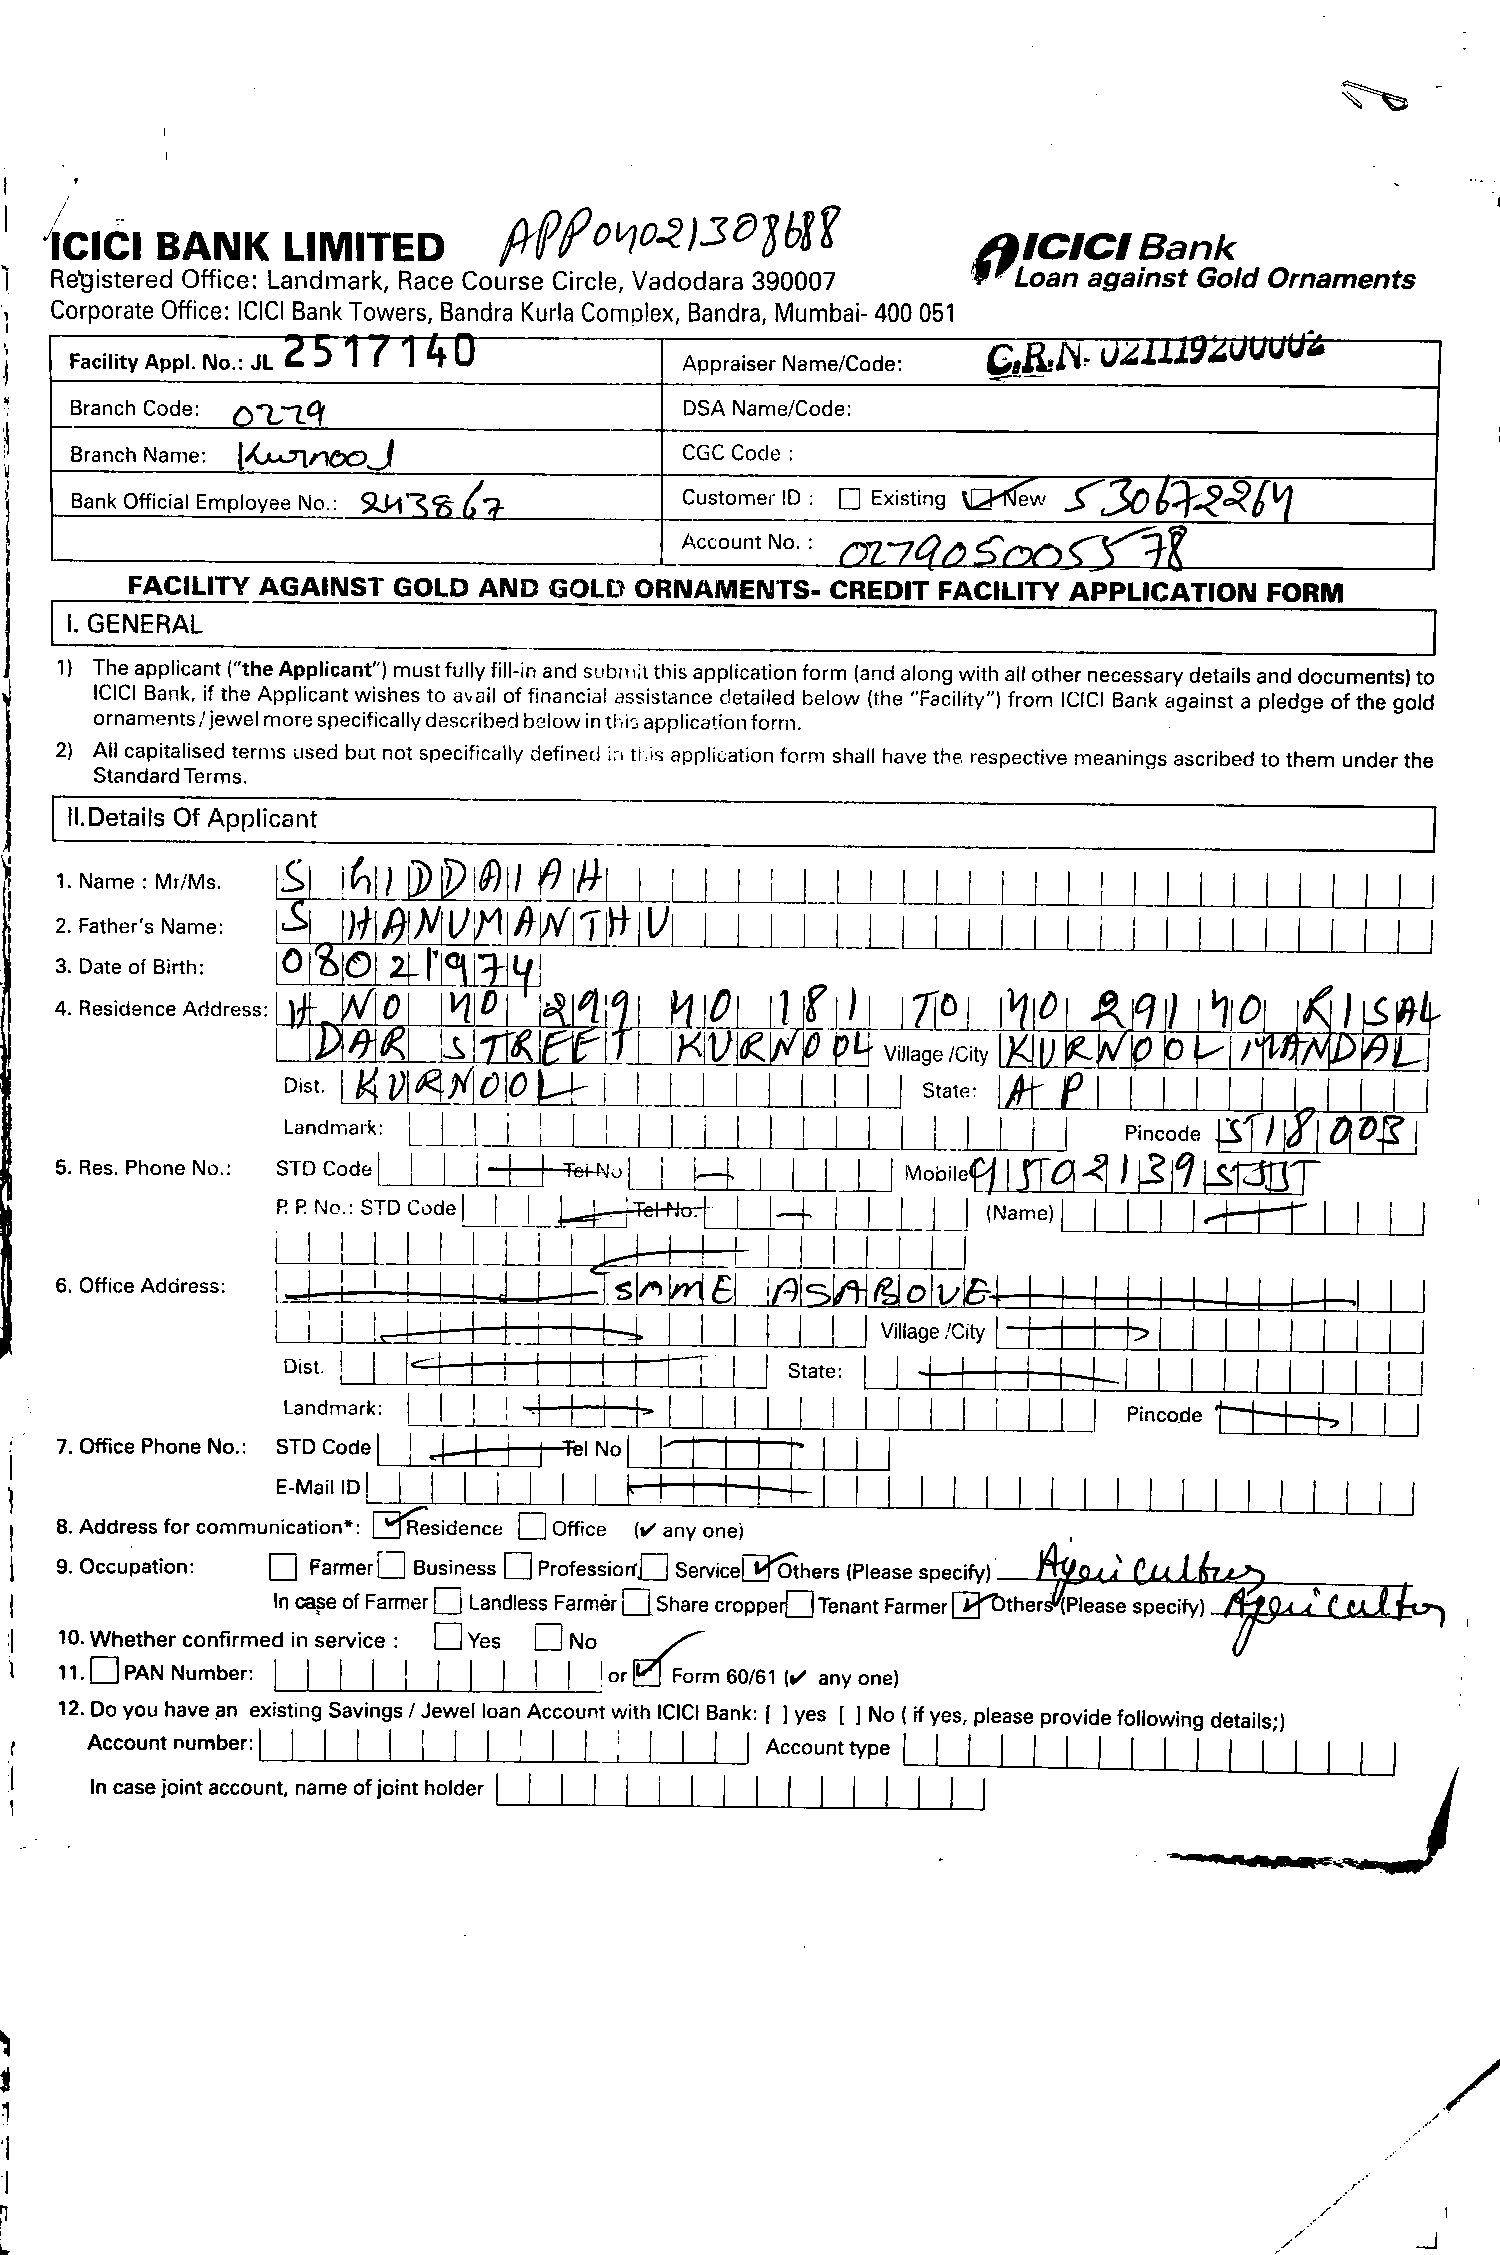 ICICI BANK LIMITED APP04021308688
ICICI Bank
Registered Office: Landmark, Race Course Circle, Vadodara 390007
Loan against Gold Ornaments
Corporate Office: ICICI Bank Towers, Bandra Kurla Complex, Bandra, Mumbai- 400 051
Facility Appl. No.: JL 2517140 Appraiser Name/Code: C.R.N.
Branch Code: 0279 DSA Name/Code:
Branch Name: Kurnool CGC Code :
Bank Official Employee No.: 243867 Customer ID : Existing New 530672264
Account No. : 027905005578
FACILITY AGAINST GOLD AND GOLD ORNAMENTS- CREDIT FACILITY APPLICATION FORM
I. GENERAL
1) The applicant ("the Applicant") must fully fill-in and submit this application form (and along with all other necessary details and documents) to
ICICI Bank, if the Applicant wishes to avail of financial assistance detailed below (the "Facility") from ICICI Bank against a pledge of the gold
ornaments / jewel more specifically described below in this application form.
2) All capitalised terms used but not specifically defined in this application form shall have the respective meanings ascribed to them under the
Standard Terms.
II. Details Of Applicant
1. Name : Mr/Ms. S GIDDAIAH
2. Father's Name: S HANUMANTHU
3. Date of Birth: 08021974
4. Residence Address: H NO 40 299 40 181 TO 40 291 40 KISAL
DAR STREET KURNOOL Village /City KURNOOL MANDAL
Dist. KURNOOL State: A P
Landmark: Pincode 518003
5. Res. Phone No.: STD Code Tel No Mobile
P. P. No.: STD Code Tel No. (Name)
6. Office Address: SAME AS ABOVE
Village /City
Dist. State:
Landmark: Pincode
7. Office Phone No.: STD Code Tel No
E-Mail ID
8. Address for communication*: ✓ Residence Office (✔ any one)
9. Occupation: Farmer Business Profession Service ✓ Others (Please specify)
In case of Farmer Landless Farmer Share cropper Tenant Farmer ✓ Others (Please specify)
10. Whether confirmed in service : Yes No
11. PAN Number: or ✓ Form 60/61 (✔ any one)
12. Do you have an existing Savings / Jewel loan Account with ICICI Bank: [ ] yes [ ] No ( if yes, please provide following details;)
Account number: Account type
In case joint account, name of joint holder